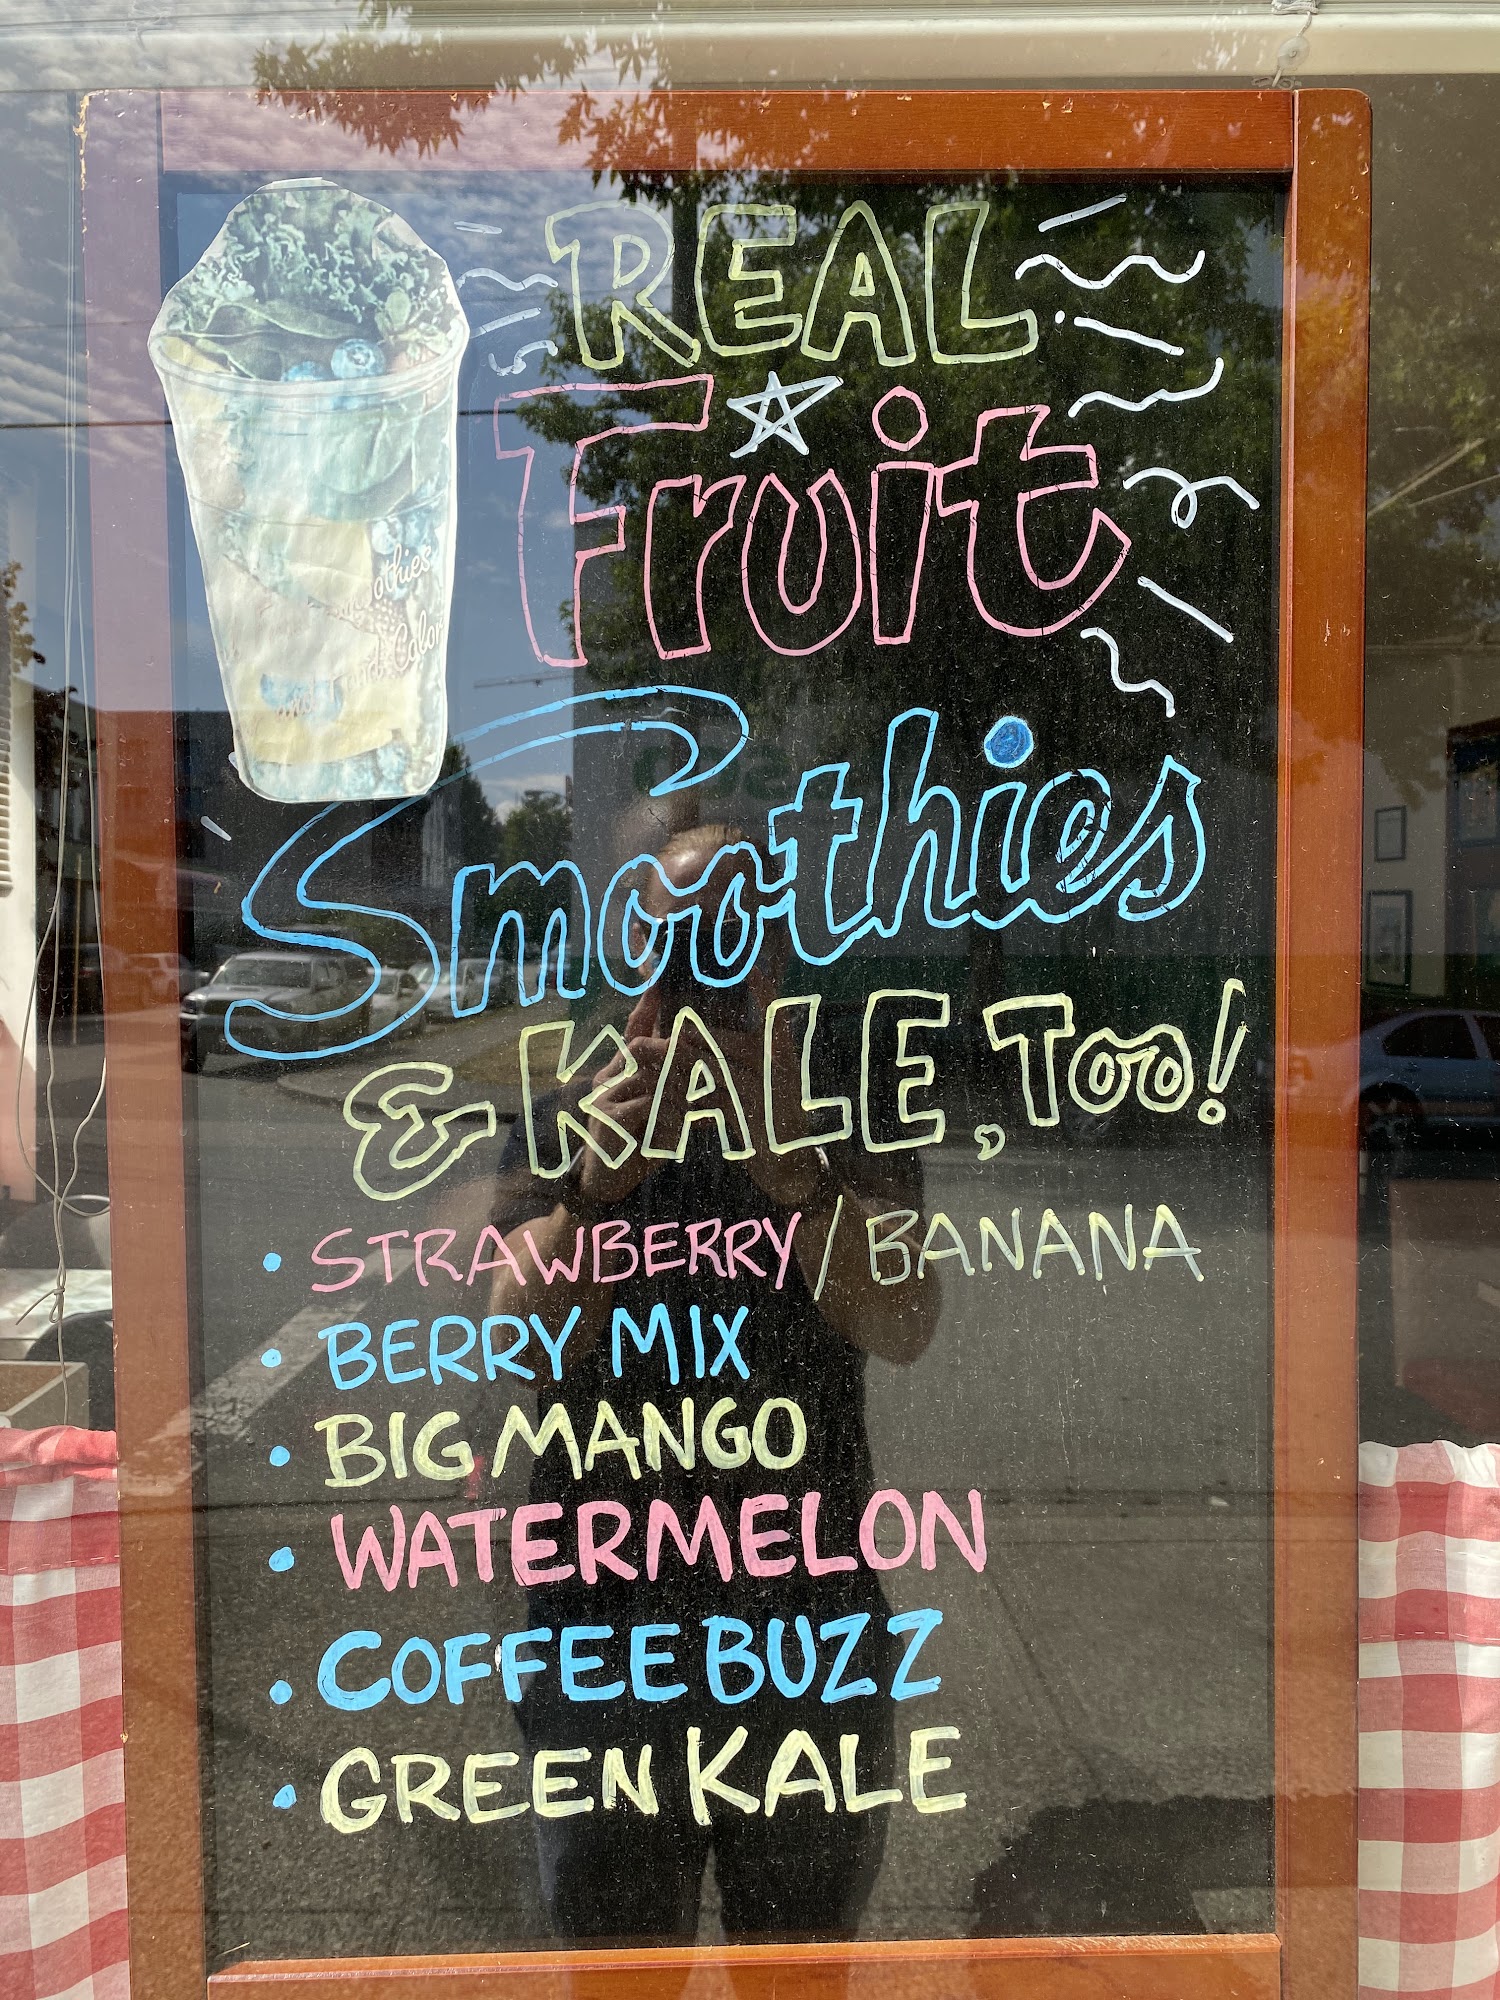 REAL
Fruit
Smoothies
& KALE, Too!
• STRAWBERRY / BANANA
• BERRY MIX
• BIG MANGO
• WATERMELON
• COFFEE BUZZ
• GREEN KALE